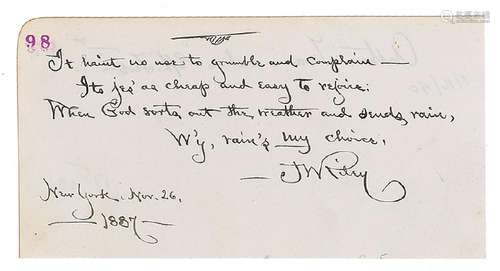 98
It haint no use to grumble and complain —
Its jes' as cheap and easy to rejoice:
When God sorts out the weather and sends rain,
W'y, rain's my choice.
— JWRiley
New York, Nov. 26,
— 1887 —